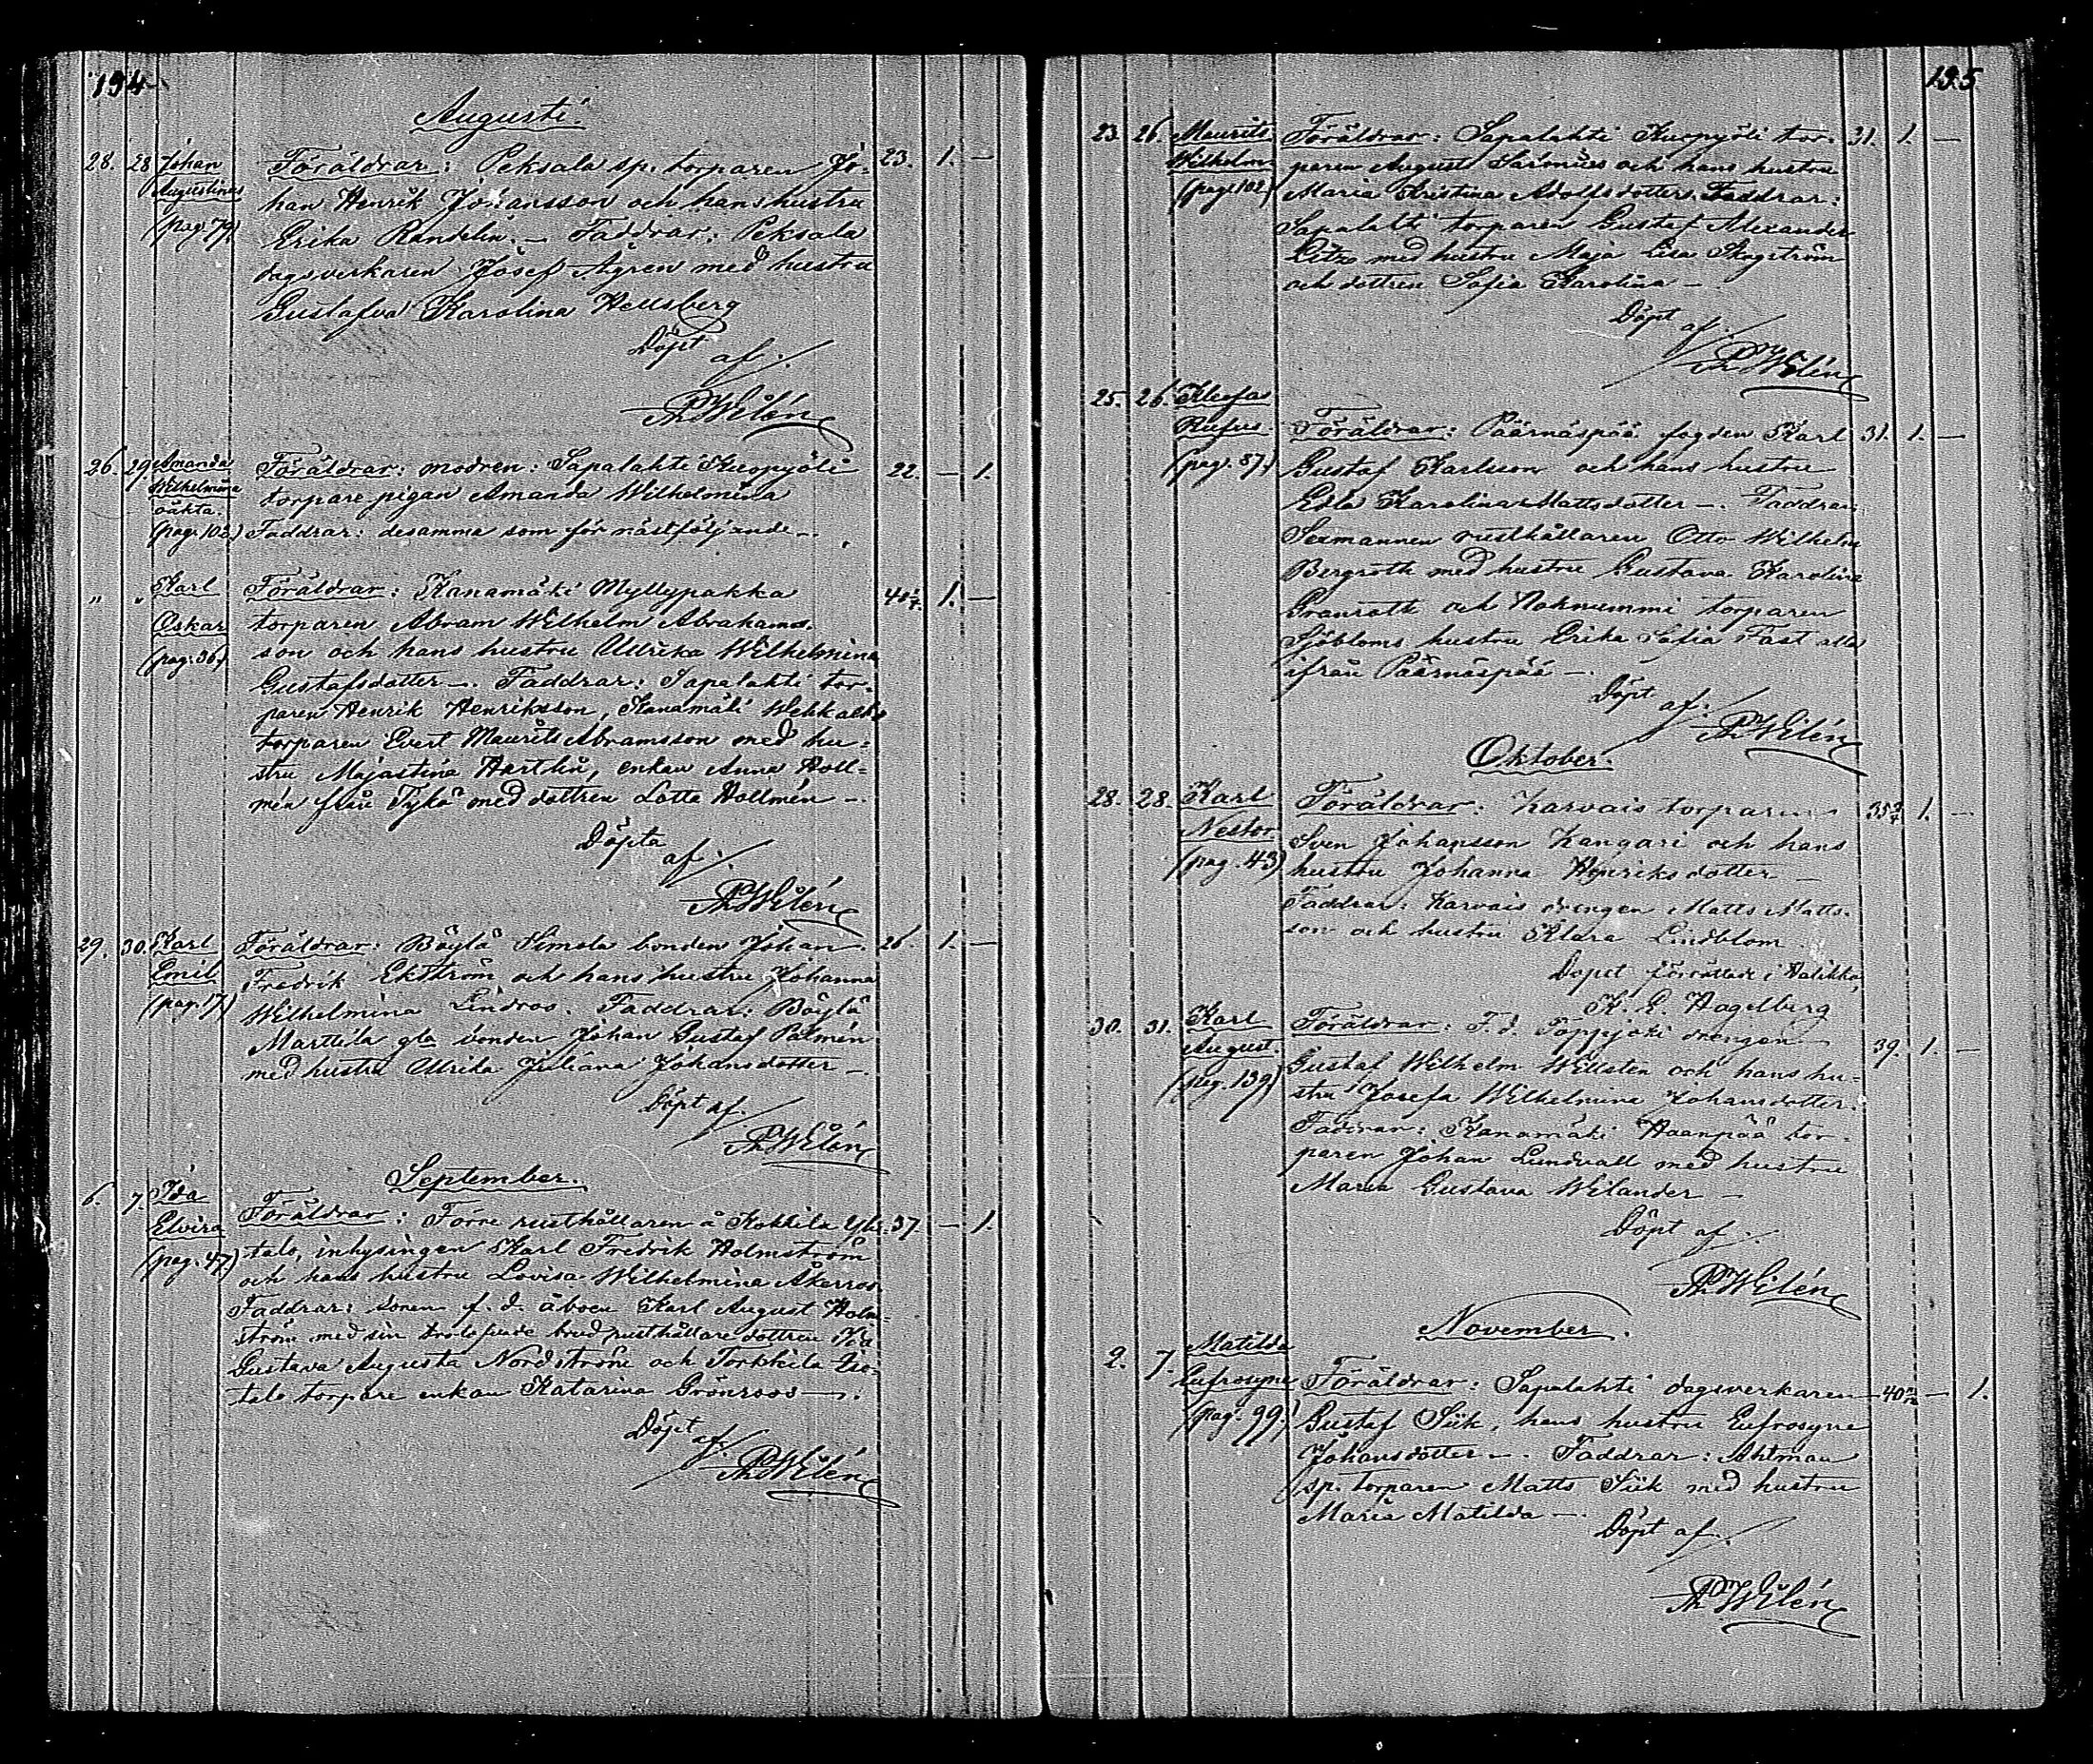 194.
Augusti.
28. 28 Johan Föräldrar: Peksala sp. torparen Jo- 23. 1. —
Augustinus han Henrik Johansson och hans hustru
(pag. 79) Erika Randelin. — Faddrar: Peksala
dagsverkaren Josef Ågren med hustru
Gustafva Karolina Hellsberg
Döpt af:
Th Wilén
26. 29. Amanda Föräldrar: modren: Sapalahti Kuopyöli 22. — 1.
Wilhelmina torpare pigan Amanda Wilhelmina
oäkta.
(pag. 102) Faddrar: desamma som för nästföljande —.
" " Karl Föräldrar: Kanamäki Myllypakka 40 1. —
Oskar torparen Abram Wilhelm Abrahams-
(pag. 36) son och hans hustru Ullrika Wilhelmina
Gustafsdotter —. Faddrar: Sapalahti tor-
paren Henrik Henriksson, Kanamäki
torparen Evert Maurits Abramsson med hu-
stru Majastina Hartlin, enkan Anna Holl-
mén från Tykö med dottren Lotta Hollmén —.
Döpta af:
Th Wilén
29. 30. Karl Föräldrar: Böylä Simola bonden Johan 26. 1. —
Emil Fredrik Ekström och hans hustru Johanna
(pag. 17) Wilhelmina Lindros. Faddrar: Böylä
Marttila gla bonden Johan Gustaf Palmén
med hustru Ulrika Juliana Johansdotter —.
Döpt af:
Th Wilén
September.
6. 7. Ida Föräldrar: Förre rusthållaren å Kokkila Yli- 37 — 1.
Elvira talo, inhysingen Karl Fredrik Holmström
(pag. 47) och hans hustru Lovisa Wilhelmina Åkerros
Faddrar: sonen f. d. åboen Karl August Holm-
ström med sin trolofvade brud rusthållare dottren Ida
Gustava Augusta Nordström och Torkkila Iso-
talo torpare enkan Katarina Grönroos —.
Döpt af:
Th Wilén
195
23. 26. Maurits Föräldrar: Sapalahti Kuopyöli tor- 31. 1. —
Wilhelm paren August och hans hustru
(pag. 102) Maria Kristina Adolfsdotter. Faddrar:
Sapalahti torparen Gustaf Alexander
med hustru Maja Lisa Skogström
och dottren Sofia Karolina —
Döpt af:
Th Wilén
25. 26. Kleofas
Rufus. Föräldrar: Päärnäspää fogden Karl 31. 1. —
(pag. 87.) Gustaf Karlsson och hans hustru
Edla Karolina Mattsdotter —. Faddrar:
Sexmannen rusthållaren Otto Wilhelm
Bergroth med hustru Gustava Karolina
Granroth och Noknummi torparen
Sjöbloms hustru Erika Sofia Fast alla
ifrån Päärnäspää —.
Döpt af:
Th Wilén
Oktober.
28. 28. Karl Föräldrar: Karvais torparen 35 1. —
Nestor. Sven Johansson Kangari och hans
(pag. 43) hustru Johanna Henriksdotter —
Faddrar: Karvais drengen Matts Matts-
son och hustru Klara Lindblom
Dopet förrättadt i Halikko,
K. E. Hagelberg
30. 31. Karl Föräldrar: F. d. Toppjoki drengen 39. 1. —
August. Gustaf Wilhelm Willsten och hans hu-
(pag. 139) stru Josefa Wilhelmina Johansdotter.
Faddrar: Kanamäki Haanpää tor-
paren Johan Lundvall med hustru
Maria Gustava Wilander —
Döpt af:
Th Wilén
November.
2. 7. Matilda
Eufrosyne Föräldrar: Sapalahti dagsverkaren 40 — 1.
(pag. 99.) Gustaf Siik, hans hustru Eufrosyne
Johansdotter —. Faddrar: Ahlman
sp. torparen Matts Siik med hustru
Maria Matilda —.
Döpt af:
Th Wilén